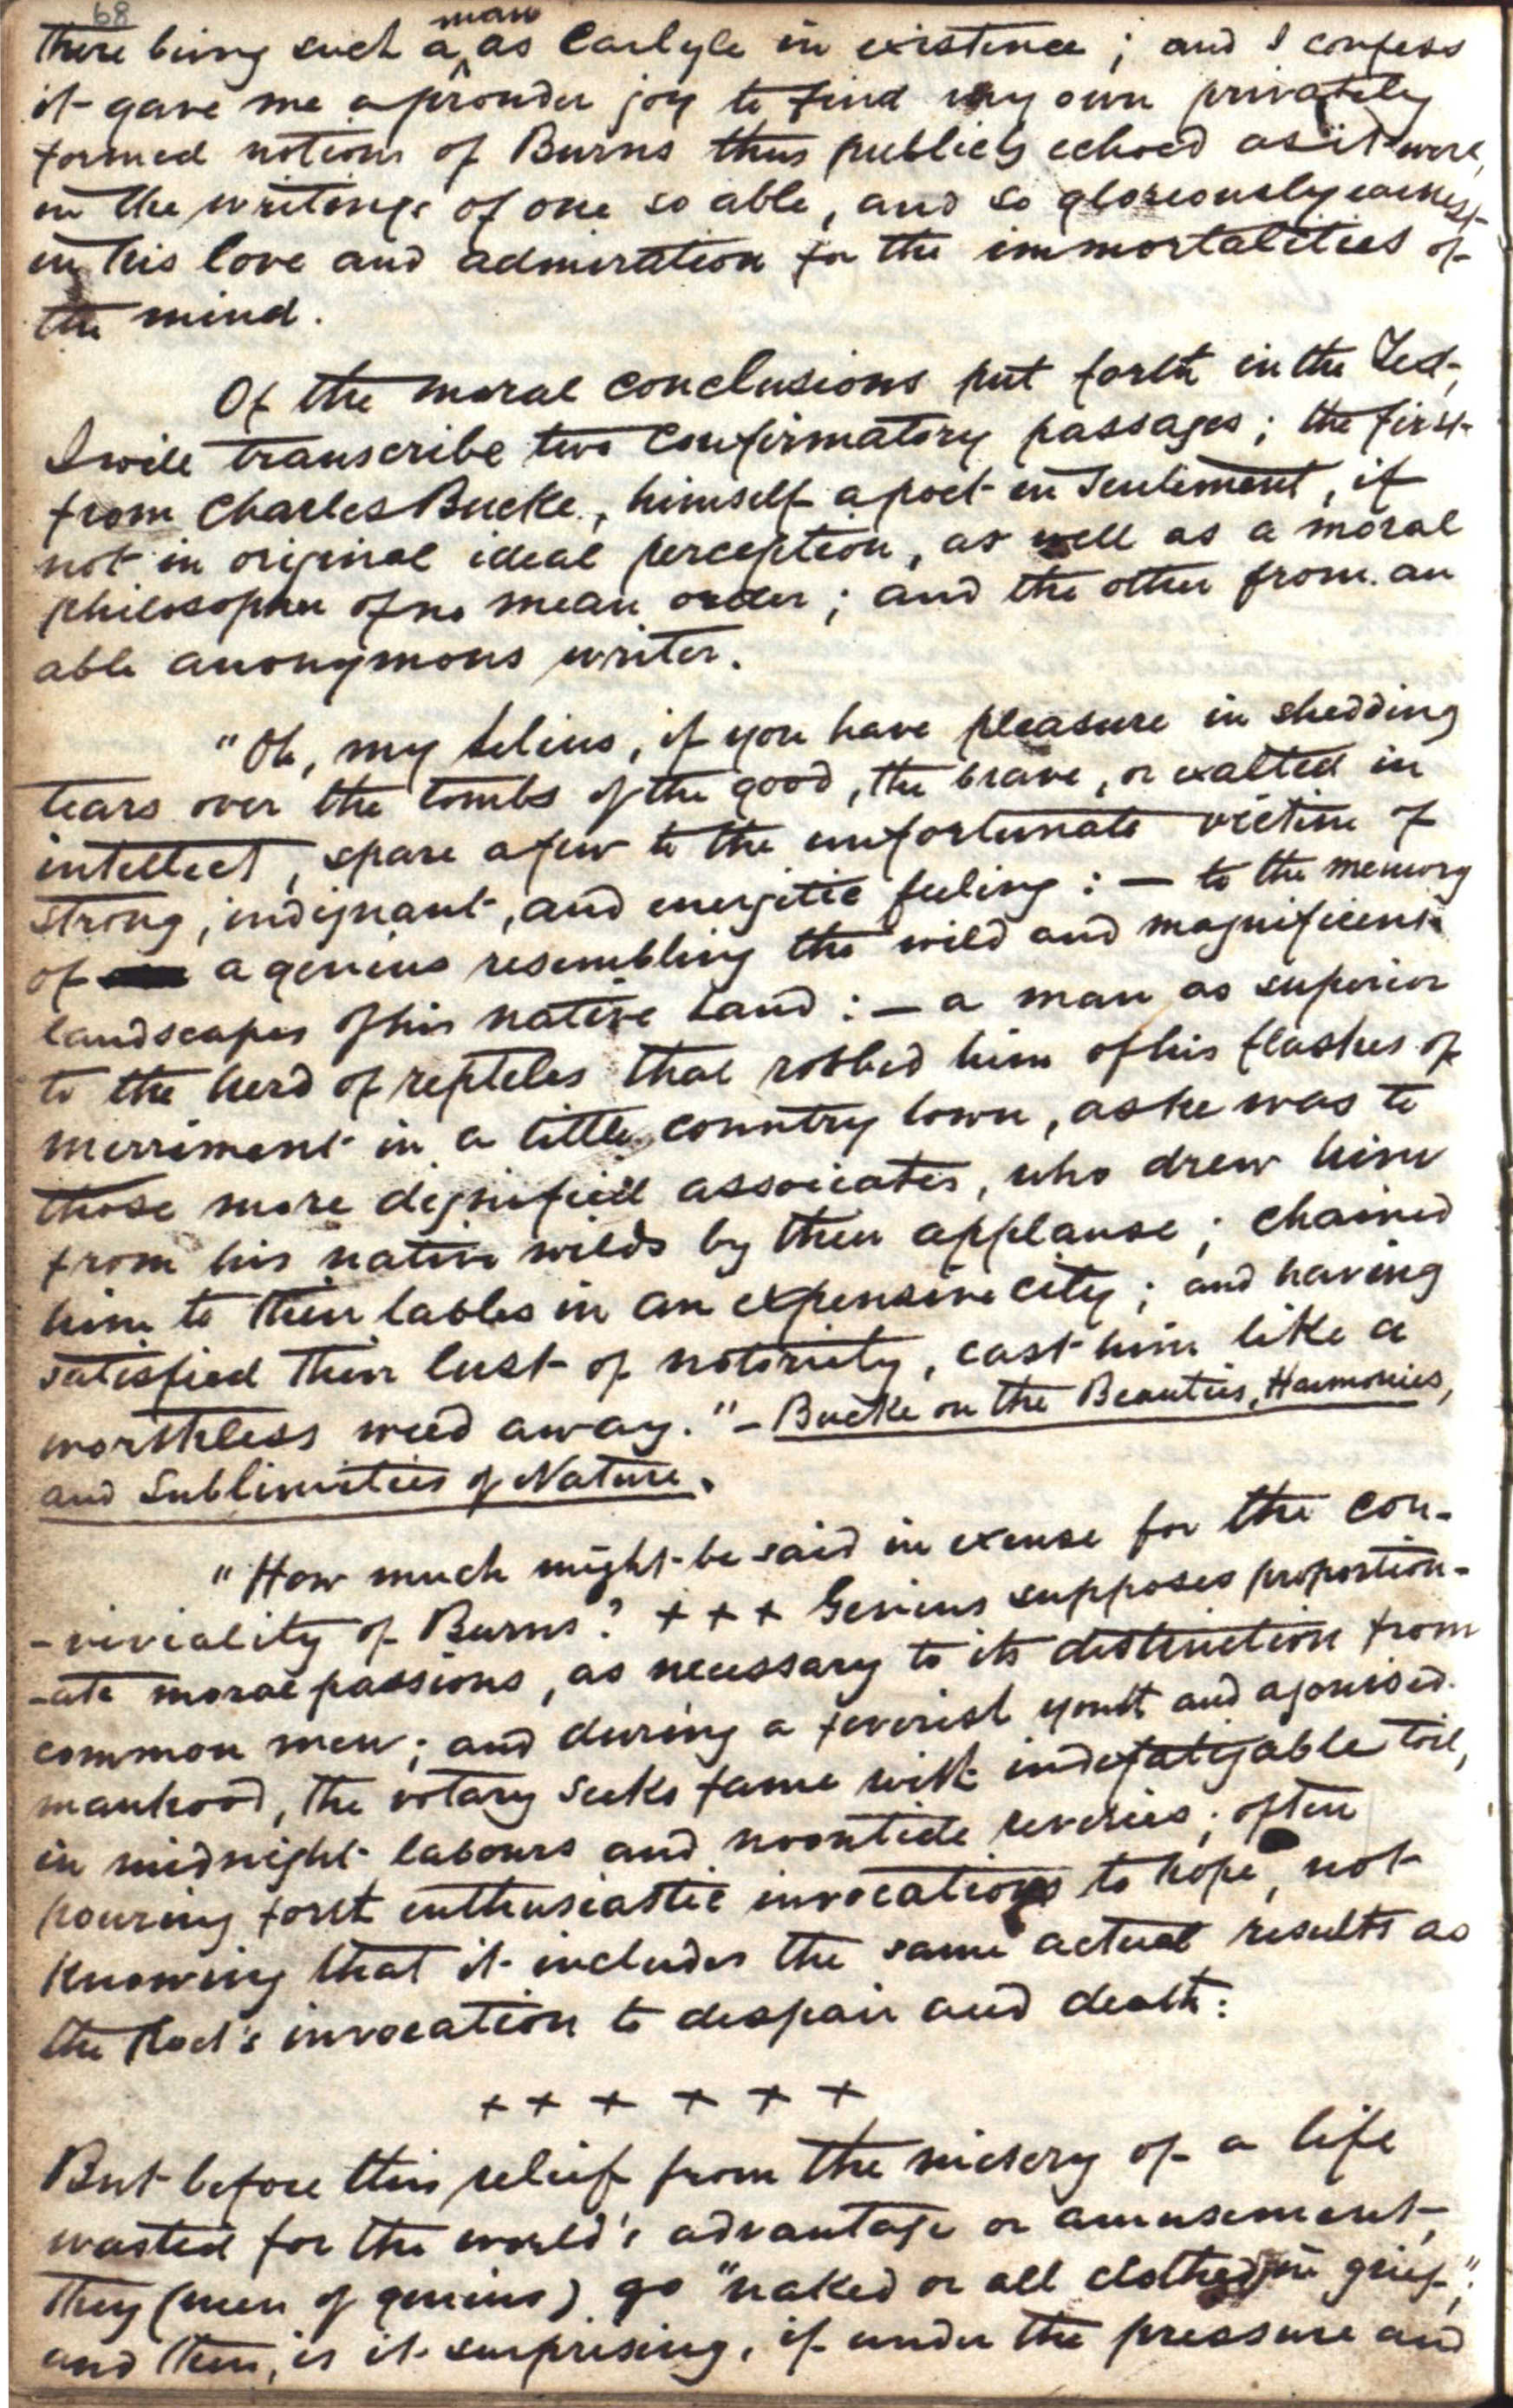 68
there being such a man as Carlyle in existence; and I confess
it gave me a prouder joy to find my own privately
formed notions of Burns thus publicly echoed as it were,
in the writings of one so able, and so gloriously earnest
in his love and admiration for the immortalities of
the mind.
Of the moral conclusions put forth in the Text,
I will transcribe two confirmatory passages; the first
from Charles Bucke, himself a poet in sentiment, if
not in original ideal perception, as well as a moral
philosopher of no mean order; and the other from an
able anonymous writer.
"Oh, my Lelius, if you have pleasure in shedding
tears over the tombs of the good, the brave, or exalted in
intellect, spare a few to the unfortunate victim of
strong, indignant, and energetic feeling: — to the memory
of a genius resembling the wild and magnificent
landscapes of his native land: — a man as superior
to the herd of reptiles that robbed him of his flashes of
merriment in a little country town, as he was to
those more dignified associates, who drew him
from his native wilds by their applause; chained
him to their tables in an expensive city; and having
satisfied their lust of notoriety, cast him like a
worthless weed away." — Bucke on the Beauties, Harmonies,
and Sublimities of Nature.
"How much might be said in excuse for the con-
-viviality of Burns? + + + Genius supposes proportion-
-ate moral passions, as necessary to its distinction from
common men; and during a feverish youth and agonised
manhood, the votary seeks fame with indefatigable toil,
in midnight labours and noontide reveries; often
pouring forth enthusiastic invocations to hope, not
knowing that it includes the same actual results as
the Poet's invocation to despair and death:
+ + + + + +
But before this relief from the misery of a life
wasted for the world's advantage or amusement,
they (men of genius) go "naked or all clothed in grief";
and then, is it surprising, if under the pressure and